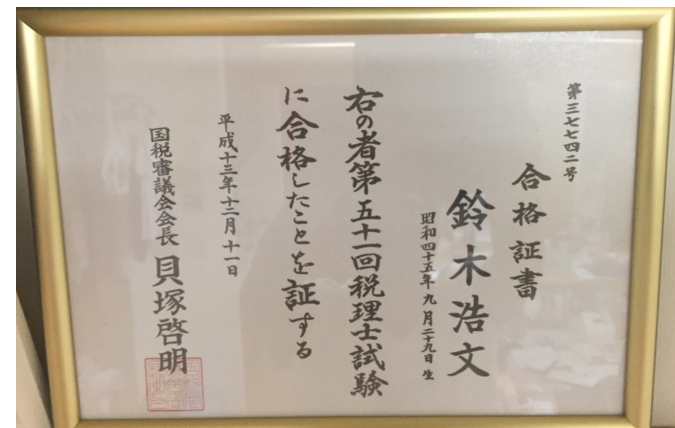 第三七七四二号
合格証書
鈴木浩文
昭和四十五年九月二十九日生
右の者第五十一回税理士試験
に合格したことを証する
平成十三年十二月十一日
国税審議会会長 貝塚啓明